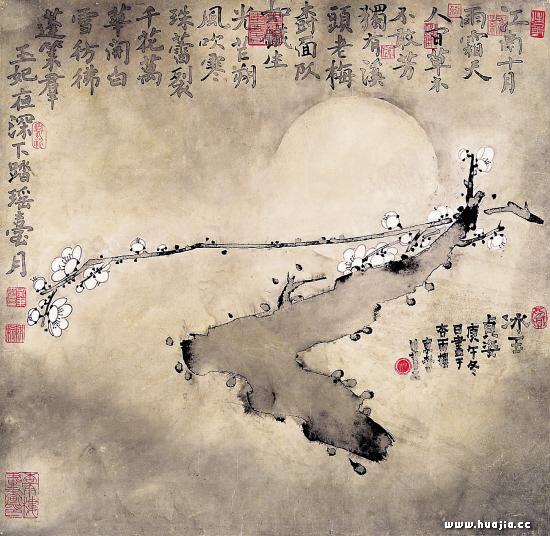 江南十月
雨霜天
人百草木
不敢芳
獨有溪
頭老梅
樹面皮
如鐵生
光芒朔
風吹寒
珠蕾裂
千花萬
華開白
雪彷彿
蓬萊群
玉妃夜深下踏瑤臺月
冰玉
貞姿
庚午冬
日畫于
杏雨樓
www.huajia.cc